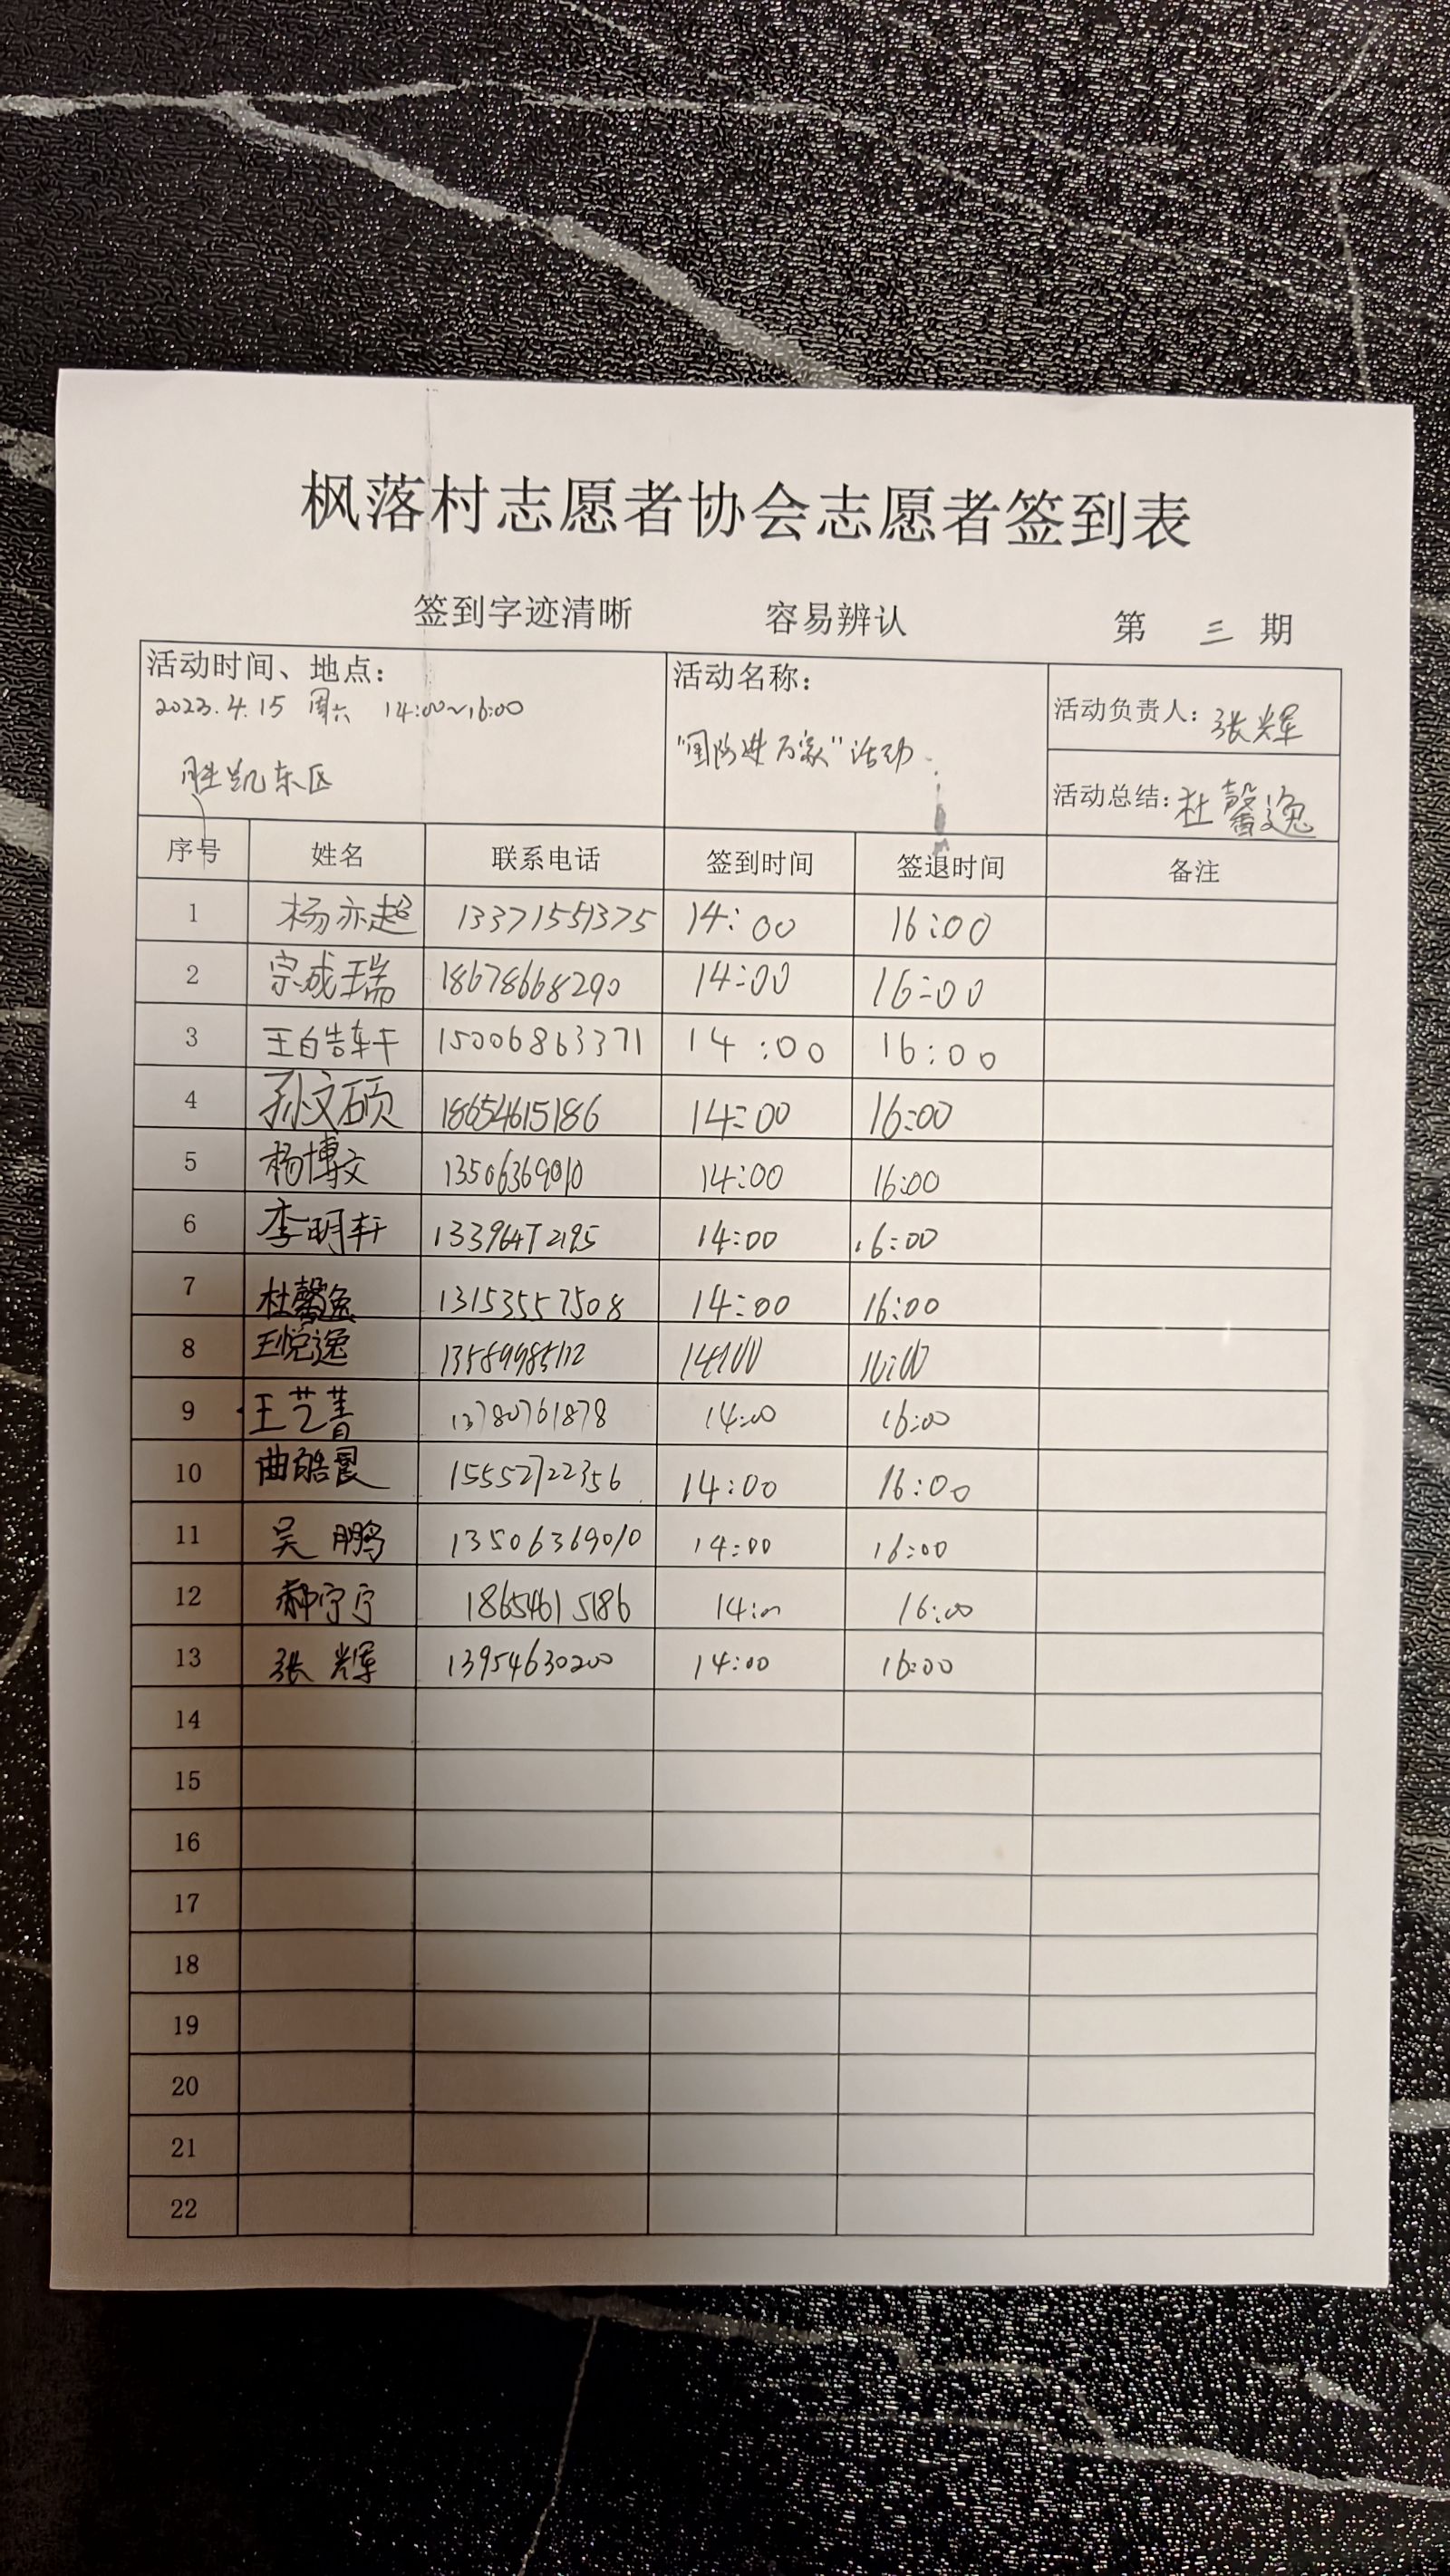 枫落村志愿者协会志愿者签到表
签到字迹清晰 容易辨认 第 三 期
活动时间、地点：
2023.4.15 周六 14:00~16:00
胜凯东区
活动名称：
"国防进万家"活动
活动负责人：张辉
活动总结：杜馨逸
序号 姓名 联系电话 签到时间 签退时间 备注
1 杨亦超 13371551375 14:00 16:00
2 宗成瑞 18678668290 14:00 16:00
3 王皓轩 15006863371 14:00 16:00
4 孙文硕 18654615186 14:00 16:00
5 杨博文 13506369010 14:00 16:00
6 李明轩 14:00 16:00
7 杜馨逸 13153557508 14:00 16:00
8 王悦逸 14:00 16:00
9 王艺菁 13780761878 14:00 16:00
10 曲皓 15552722356 14:00 16:00
11 吴鹏 13506369010 14:00 16:00
12 郝宁宁 18654615186 14:00 16:00
13 张辉 13954630200 14:00 16:00
14
15
16
17
18
19
20
21
22